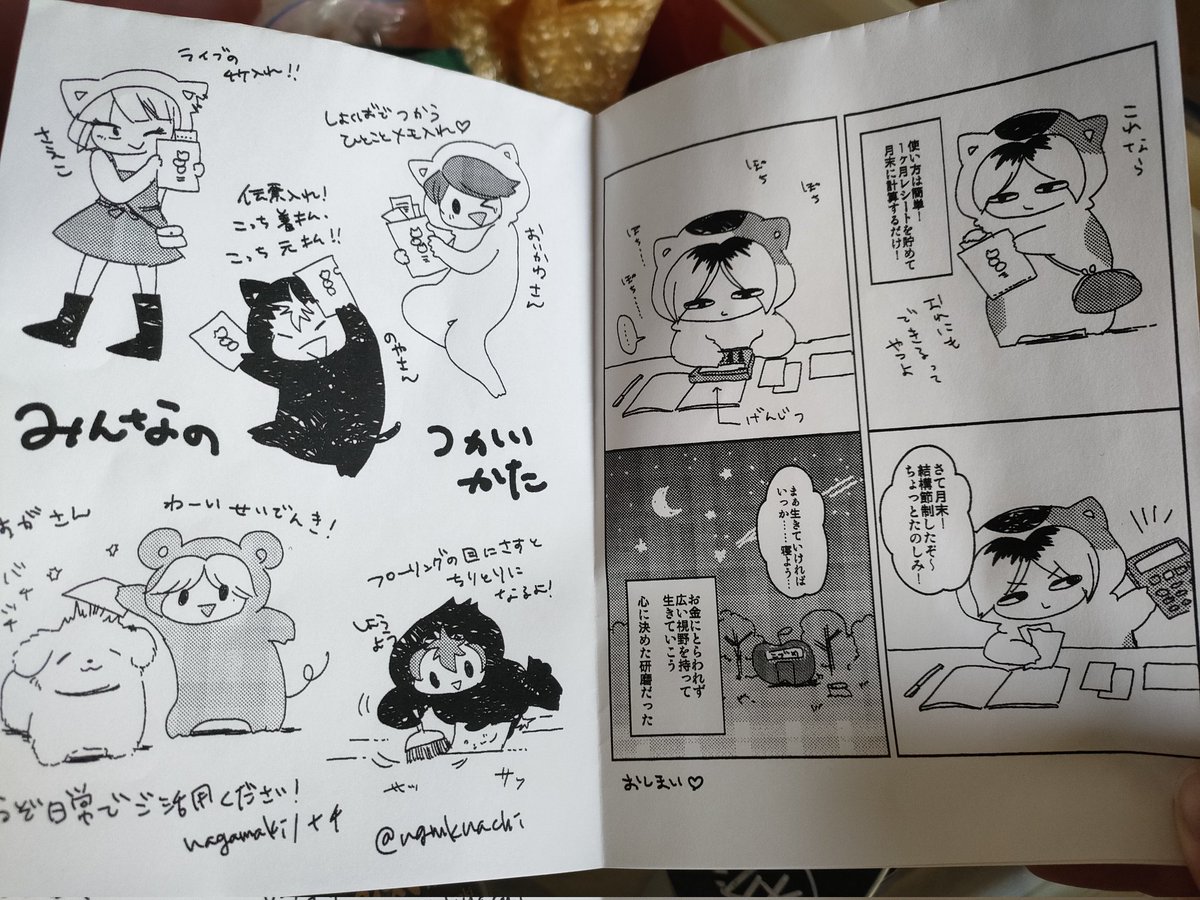 これなら
使い方は簡単!
1ヶ月レシートを貯めて
月末に計算するだけ!
おれにも
できるって
やつよ
さて月末!
結構節制したぞ〜
ちょっとたのしみ!
ぽち
ぽち
ぽち……
ぽち……
……
げんじつ
まぁ生きていければ
いっか……寝よう…
お金にとらわれず
広い視野を持って
生きていこう
心に決めた研磨だった
おしまい♡
ライブの
チケ入れ!!
しょくばでつかう
ひとことメモ入れ♡
おいかわさん
伝票入れ!
こっち
こっち
のやさん
みんなの
つかい
かた
おがさん
わーい せいでんき!
フローリングの目にさすと
ちりとりに
なるよ!
サッ
うぞ日常でご活用ください!
nagamaki/ナチ
@ngmknachi